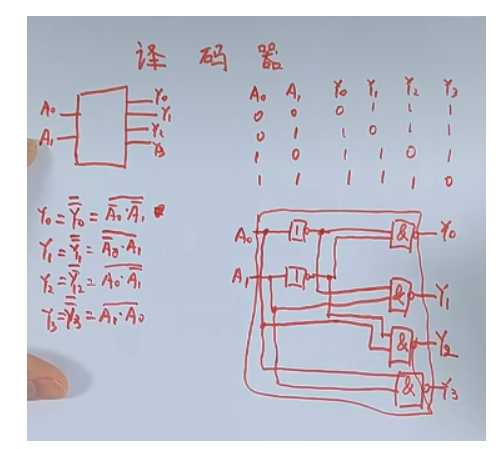 译码器
A₀ Y₀
Y₁
A₁ Y₂
Y₃
A₀ A₁ Y₀ Y₁ Y₂ Y₃
0 0 0 1 1 1
0 1 1 0 1 1
1 0 1 1 0 1
1 1 1 1 1 0
Y₀ = Y̿₀ = \overline{A̅₀·A̅₁}
Y₁ = Y̿₁ = \overline{A̅₀·A₁}
Y₂ = Y̿₂ = \overline{A₀·A̅₁}
Y₃ = Y̿₃ = \overline{A₁·A₀}
A₀ 1 & Y₀
A₁ 1
& Y₁
& Y₂
& Y₃